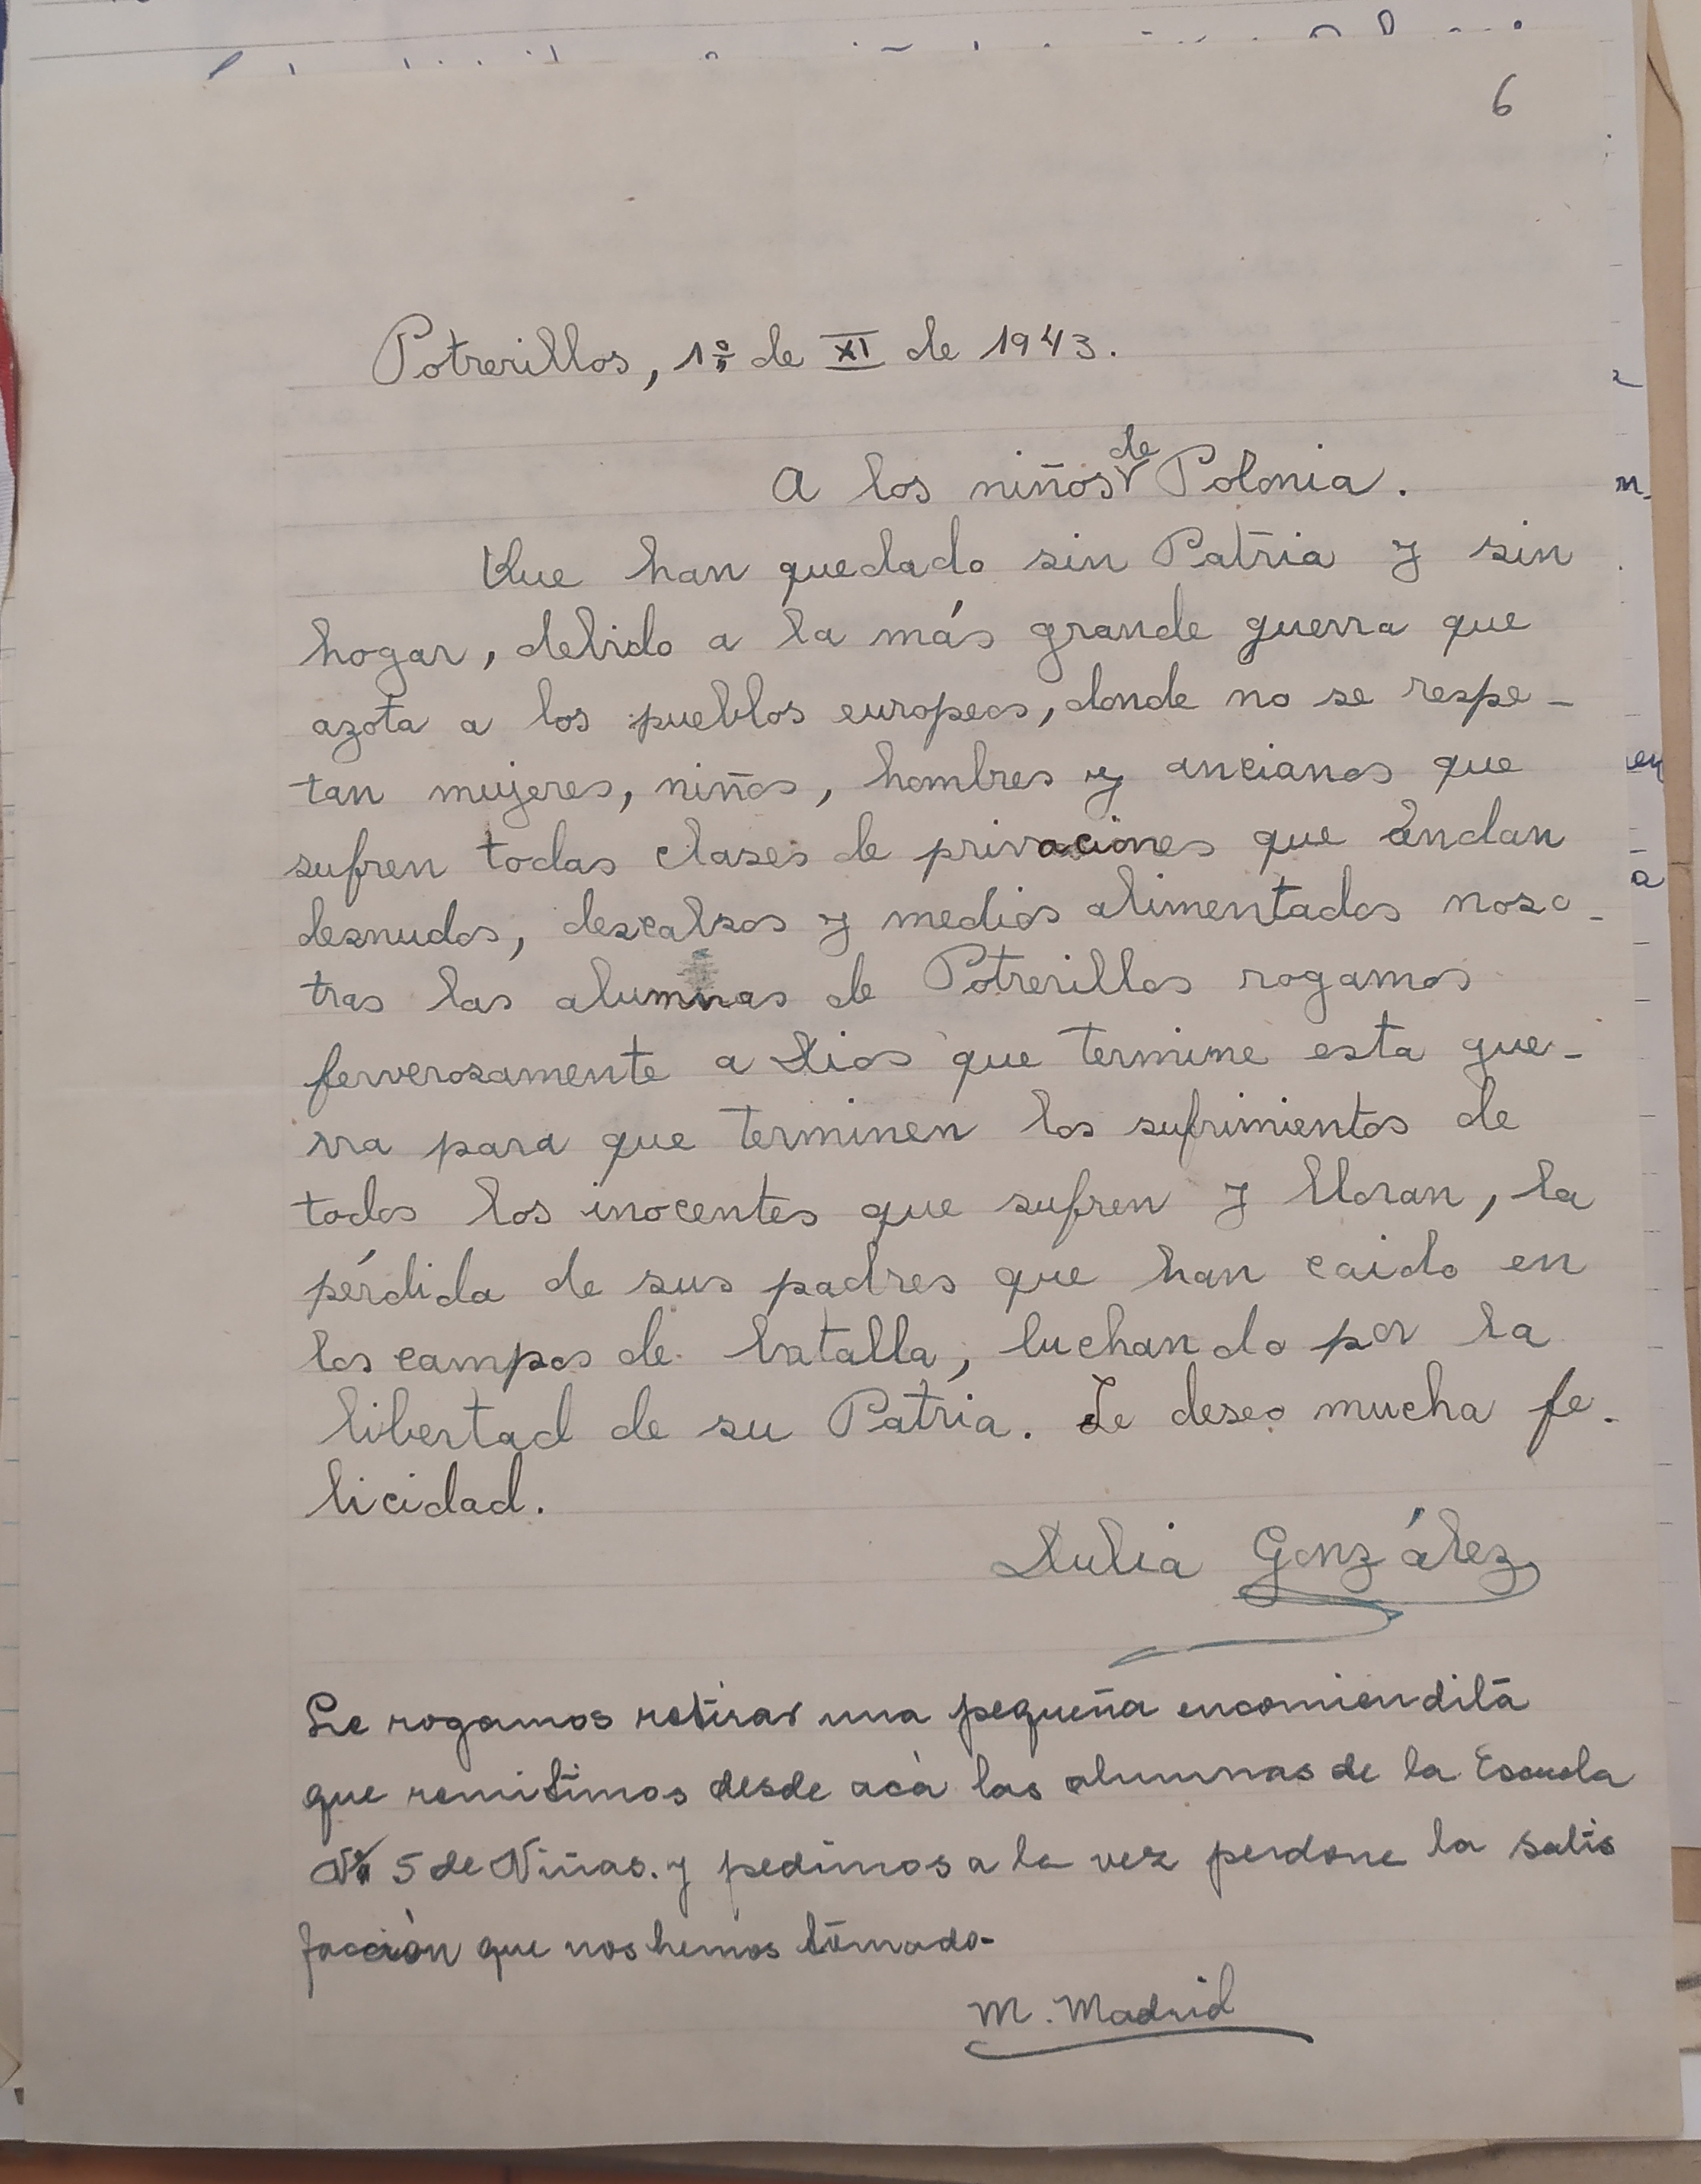 6
Potrerillos, 1º de XI de 1943.
A los niños de Polonia.
Que han quedado sin Patria y sin
hogar, debido a la más grande guerra que
azota a los pueblos europeos, donde no se respe-
tan mujeres, niños, hombres y ancianos que
sufren todas clases de privaciones que andan
desnudos, descalsos y medios alimentados noso-
tras las alumnas de Potrerillos rogamos
ferverosamente a Dios que termine esta gue-
rra para que terminen los sufrimientos de
todos los inocentes que sufren y lloran, la
pérdida de sus padres que han caido en
los campos de batalla, luchando por la
libertad de su Patria. Le deseo mucha fe-
licidad.
Julia González
Le rogamos retirar una pequeña encomiendita
que remitimos desde acá las alumnas de la Escuela
Nº 5 de Niñas. y pedimos a la vez perdone la satis
facción que nos hemos tomado-
M. Madrid